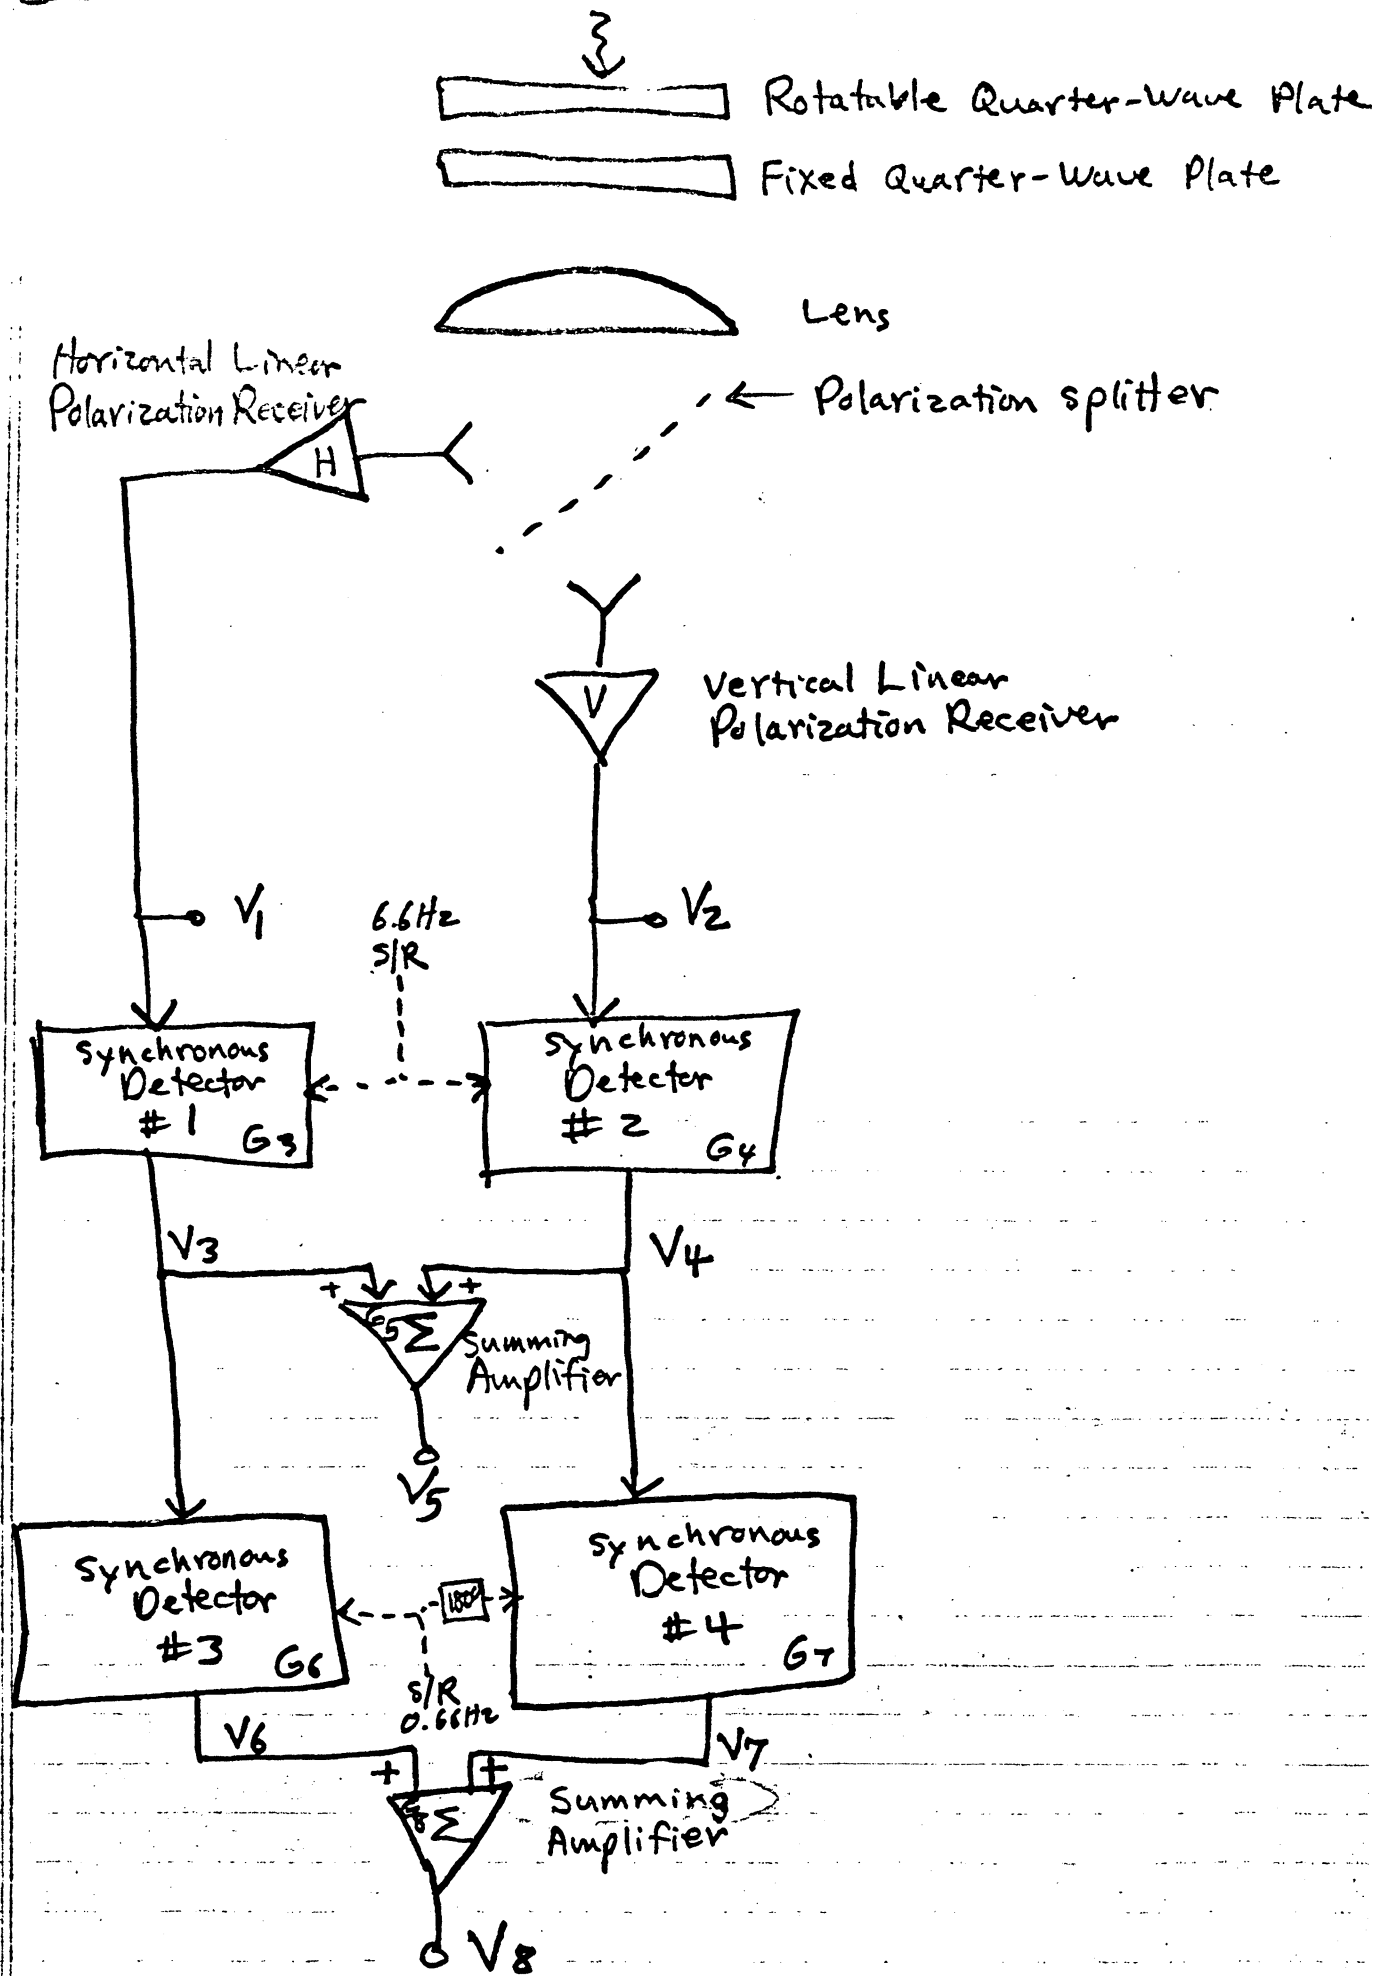 Rotatable Quarter-Wave Plate
Fixed Quarter-Wave Plate
Lens
Horizontal Linear
Polarization Receiver
Polarization splitter
H
V
Vertical Linear
Polarization Receiver
V1
6.6Hz
S/R
V2
Synchronous
Detector
#1
G3
Synchronous
Detector
#2
G4
V3
V4
+
+
G5 Σ
Summing
Amplifier
V5
Synchronous
Detector
#3
G6
180°
Synchronous
Detector
#4
G7
S/R
0.66Hz
V6
V7
+
+
G8 Σ
Summing
Amplifier
V8